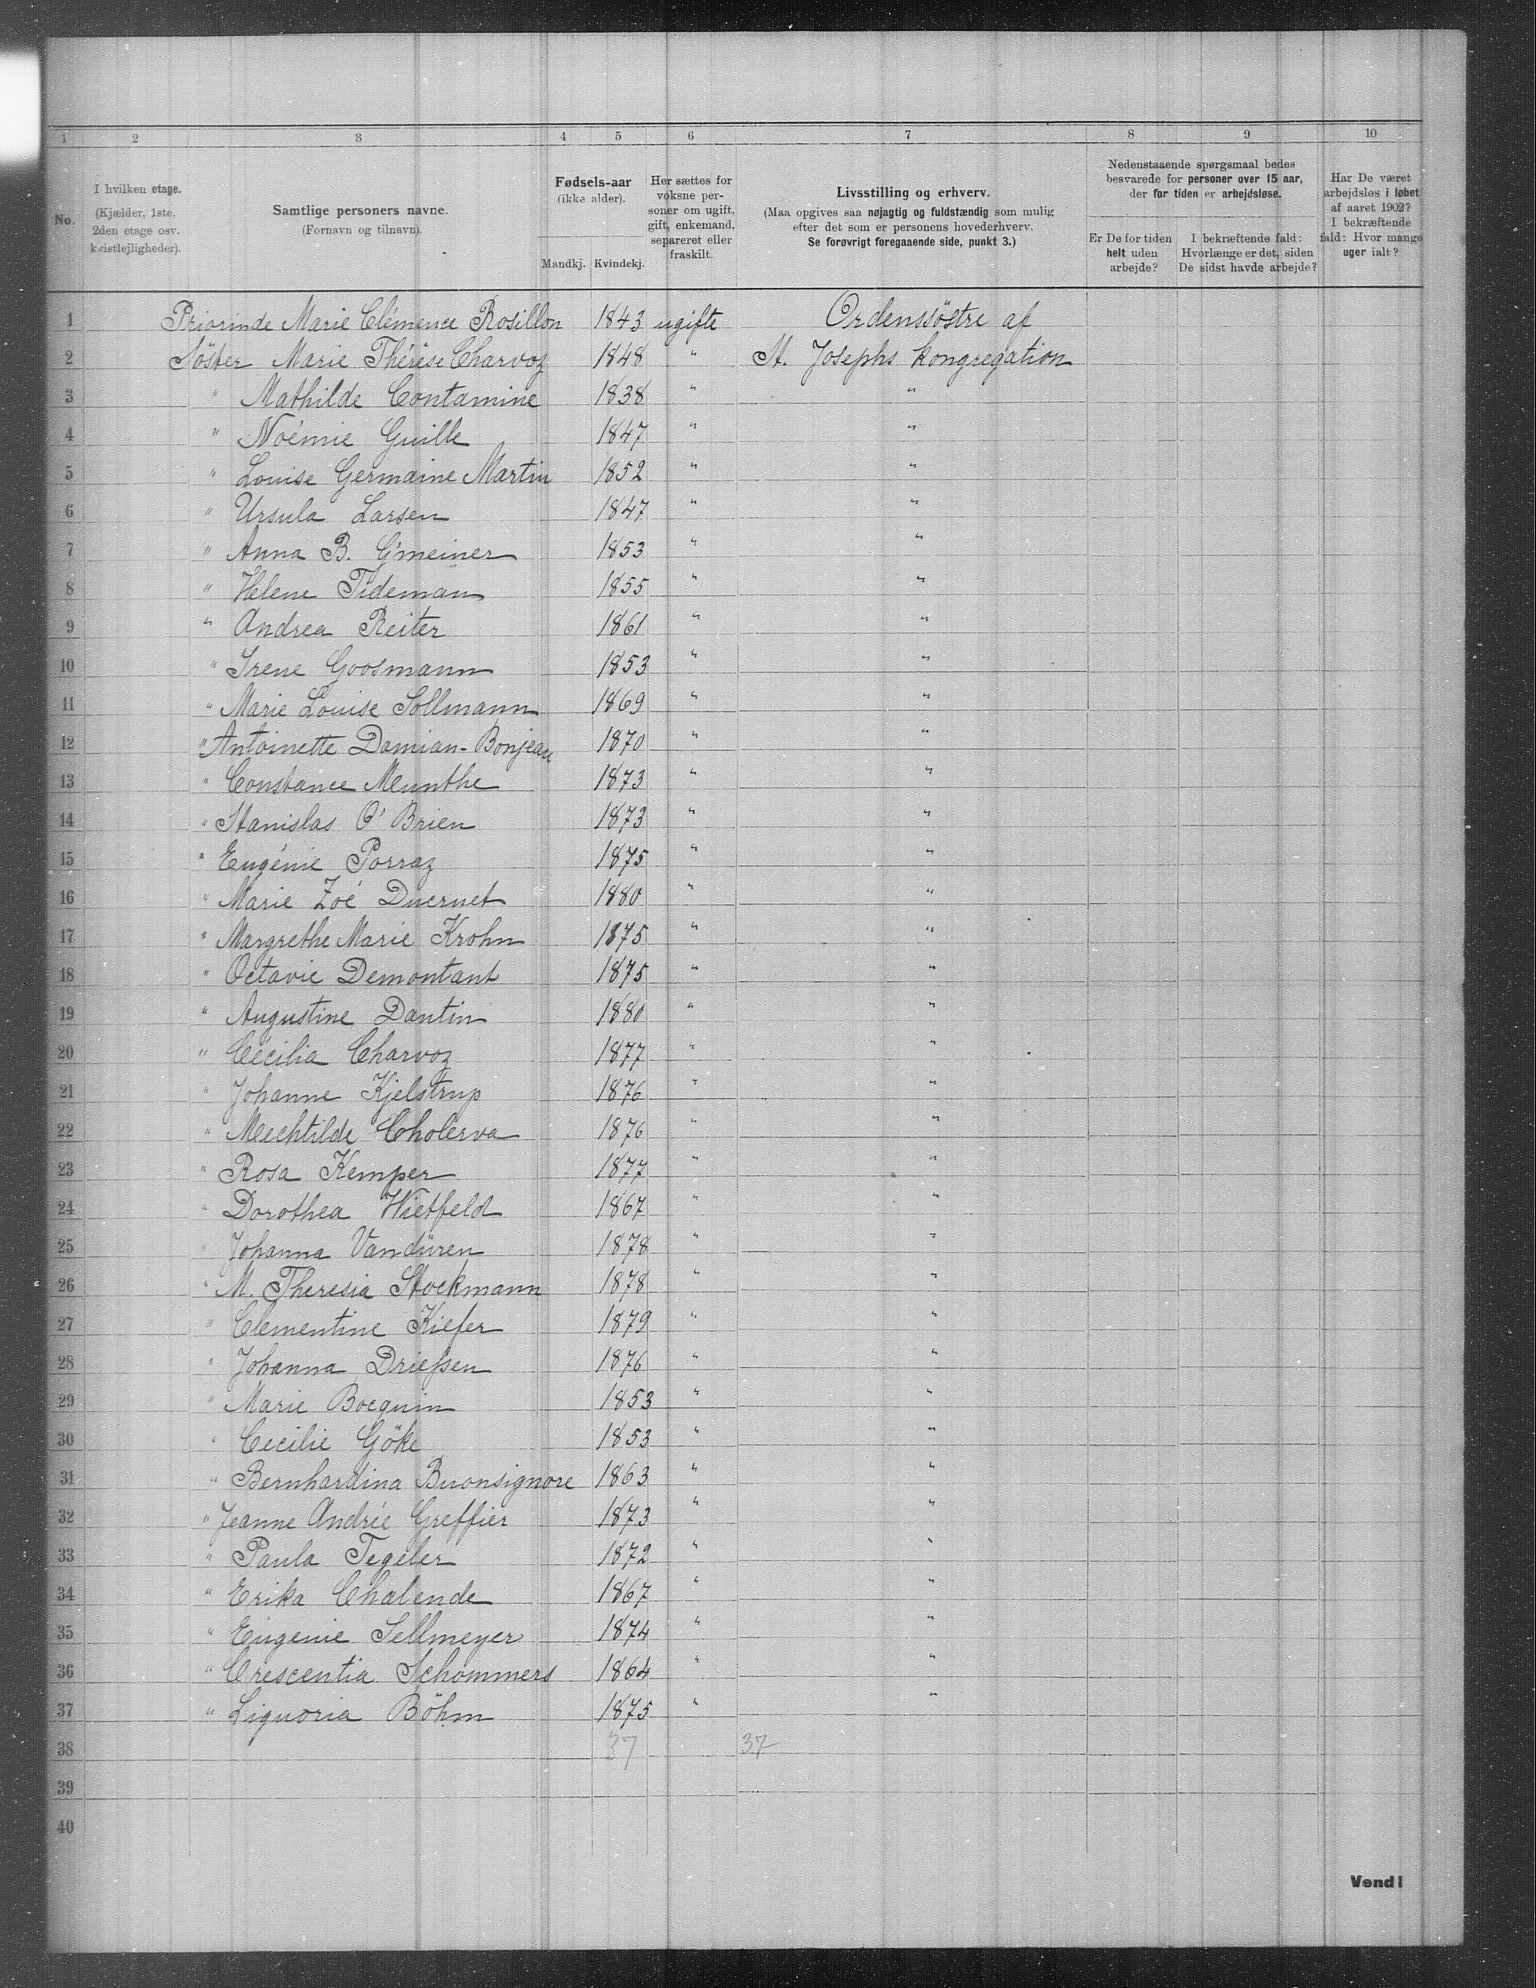 1 2 3 4 5 6 7 8 9 10
No.
I hvilken etage.
(Kjælder, 1ste,
2den etage osv.
kvistlejligheder).
Samtlige personers navne.
(Fornavn og tilnavn).
Fødsels-aar
(ikke alder).
Mandkj. Kvindekj.
Her sættes for
voksne per-
soner om ugift,
gift, enkemand,
separeret eller
fraskilt.
Livsstilling og erhverv.
(Maa opgives saa nøjagtig og fuldstændig som mulig
efter det som er personens hovederhverv.
Se forøvrigt foregaaende side, punkt 3.)
Nedenstaaende spørgsmaal bedes
besvarede for personer over 15 aar,
der for tiden er arbejdsløse.
Er De for tiden
helt uden
arbejde?
I bekræftende fald:
Hvorlænge er det, siden
De sidst havde arbejde?
Har De været
arbejdsløs i løbet
af aaret 1902?
I bekræftende
fald: Hvor mange
uger ialt?
1 Priorinde Marie Clémence Rosillon 1843 ugifte Ordenssöstre af
2 Söster Marie Thérèse Charvoz 1848 " St. Josephs kongregation
3 " Mathilde Contamine 1838 " "
4 " Noémie Guille 1847 " "
5 " Louise Germaine Martin 1852 " "
6 " Ursula Larsen 1847 " "
7 " Anna B. G'meiner 1853 " "
8 " Helene Tideman 1855 " "
9 " Andrea Reiter 1861 " "
10 " Irene Goosmann 1853 " "
11 " Marie Louise Sollmann 1869 " "
12 " Antoinette Damian-Bonjean 1870 " "
13 " Constance Munthe 1873 " "
14 " Stanislas O'Brien 1873 " "
15 " Eugénie Porraz 1875 " "
16 " Marie Zoé Duernet 1880 " "
17 " Margrethe Marie Krohn 1875 " "
18 " Octavie Demontant 1875 " "
19 " Augustine Dantin 1880 " "
20 " Cécilia Charvoz 1877 " "
21 " Johanne Kjelstrup 1876 " "
22 " Mechtilde Cholerva 1876 " "
23 " Rosa Kemper 1877 " "
24 " Dorothea Wietfeld 1867 " "
25 " Johanna Vandüren 1878 " "
26 " M. Theresia Stockmann 1878 " "
27 " Clementine Kiefer 1879 " "
28 " Johanna Drießen 1876 " "
29 " Marie Bocquin 1853 " "
30 " Cecilie Göke 1853 " "
31 " Bernhardina Buonsignore 1863 " "
32 " Jeanne Andrée Greffier 1873 " "
33 " Paula Tegeler 1872 " "
34 " Erika Chalende 1867 " "
35 " Eugenie Sellmeyer 1874 " "
36 " Crescentia Schommers 1864 " "
37 " Liguoria Böhm 1875 " "
38 37 37
39
40
Vend!